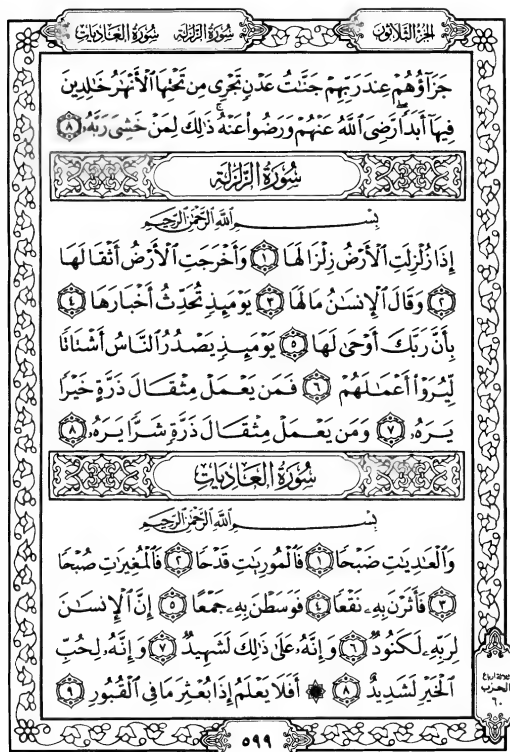 سُورَةُ العَادِيَاتِ سُورَةُ الزَّلْزَلَة الجُزْءُ الثَّلَاثُونَ
جَزَآؤُهُمْ عِندَ رَبِّهِمْ جَنَّـٰتُ عَدْنٍ تَجْرِى مِن تَحْتِهَا ٱلْأَنْهَـٰرُ خَـٰلِدِينَ
فِيهَآ أَبَدًا ۖ رَّضِىَ ٱللَّهُ عَنْهُمْ وَرَضُوا۟ عَنْهُ ۚ ذَٰلِكَ لِمَنْ خَشِىَ رَبَّهُۥ ٨
سُورَةُ الزَّلْزَلَة
بِسْمِ ٱللَّهِ ٱلرَّحْمَـٰنِ ٱلرَّحِيمِ
إِذَا زُلْزِلَتِ ٱلْأَرْضُ زِلْزَالَهَا ١ وَأَخْرَجَتِ ٱلْأَرْضُ أَثْقَالَهَا
٢ وَقَالَ ٱلْإِنسَـٰنُ مَا لَهَا ٣ يَوْمَئِذٍ تُحَدِّثُ أَخْبَارَهَا ٤
بِأَنَّ رَبَّكَ أَوْحَىٰ لَهَا ٥ يَوْمَئِذٍ يَصْدُرُ ٱلنَّاسُ أَشْتَاتًا
لِّيُرَوْا۟ أَعْمَـٰلَهُمْ ٦ فَمَن يَعْمَلْ مِثْقَالَ ذَرَّةٍ خَيْرًا
يَرَهُۥ ٧ وَمَن يَعْمَلْ مِثْقَالَ ذَرَّةٍ شَرًّا يَرَهُۥ ٨
سُورَةُ العَادِيَاتِ
بِسْمِ ٱللَّهِ ٱلرَّحْمَـٰنِ ٱلرَّحِيمِ
وَٱلْعَـٰدِيَـٰتِ ضَبْحًا ١ فَٱلْمُورِيَـٰتِ قَدْحًا ٢ فَٱلْمُغِيرَٰتِ صُبْحًا
٣ فَأَثَرْنَ بِهِۦ نَقْعًا ٤ فَوَسَطْنَ بِهِۦ جَمْعًا ٥ إِنَّ ٱلْإِنسَـٰنَ
لِرَبِّهِۦ لَكَنُودٌ ٦ وَإِنَّهُۥ عَلَىٰ ذَٰلِكَ لَشَهِيدٌ ٧ وَإِنَّهُۥ لِحُبِّ
ٱلْخَيْرِ لَشَدِيدٌ ٨ ۞ أَفَلَا يَعْلَمُ إِذَا بُعْثِرَ مَا فِى ٱلْقُبُورِ ٩
ثلاثة أرباع
الحزب
٦٠
٥٩٩